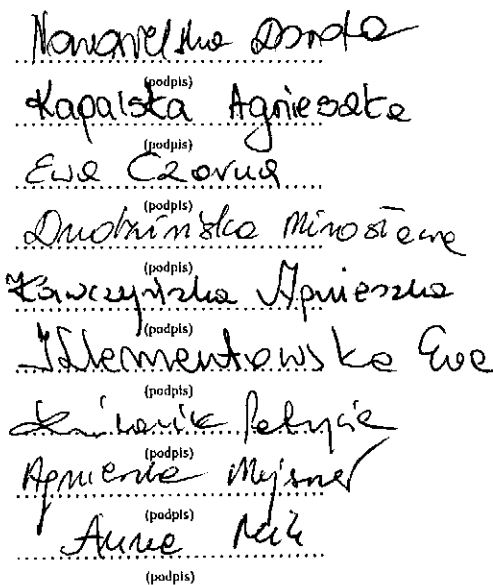 Dorota
(podpis)
Kapalska Agnieszka
(podpis)
Ewa Czarna
(podpis)
Dudzińska Mirosława
(podpis)
Kawczyńska Agnieszka
(podpis)
Klementowska Ewa
(podpis)
Patrycja
(podpis)
Agnieszka Mejsner
(podpis)
Anna
(podpis)